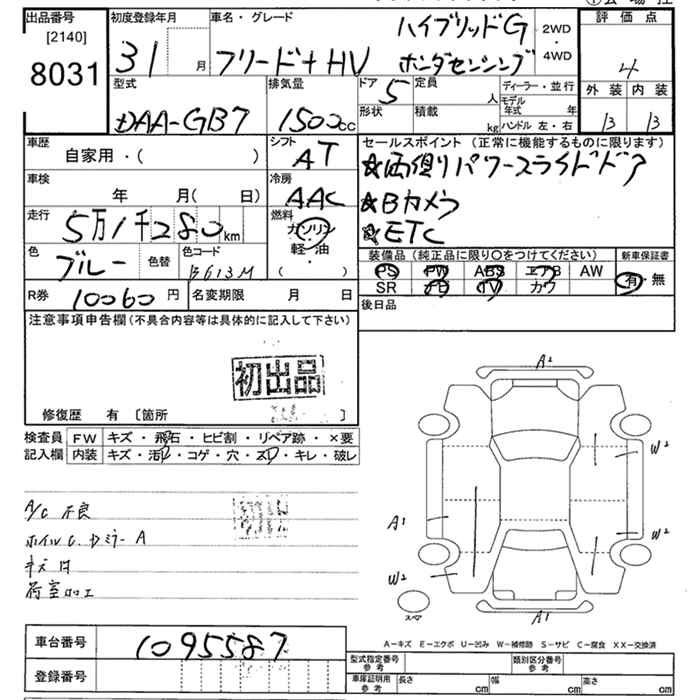 出品番号
[2140]
8031
初度登録年月
31 月
車名・グレード
フリード+ HV
ハイブリッドG
ホンダセンシング
2WD
・
4WD
評価点
4
外装 内装
B B
型式
DAA-GB7
排気量
1500cc
ドア 5
定員 人
形状
積載 kg
ディーラー・並行
モデル年式 年
ハンドル 左・右
車歴
自家用・( )
シフト
AT
車検
年 月( 日)
冷房
AAC
走行
5万1千280km
燃料
ガソリン
軽・油
( ・ )
色
ブルー
色替
色コード
B613M
R券 10060円
名変期限 月 日
セールスポイント (正常に機能するものに限ります)
☆両側パワースライドドア
☆Bカメラ
☆ETC
装備品 (純正品に限り○をつけてください)
PS PW ABS エアB AW
SR TV カワ
新車保証書
有・無
後日品
注意事項申告欄(不具合内容等は具体的に記入して下さい)
初出品
修復歴 有 [箇所 ]
検査員
記入欄
FW キズ・飛石・ヒビ割・リペア跡・×要
内装 キズ・汚レ・コゲ・穴・スレ・キレ・破レ
A/C 不良
ホイルC. ドミラーA
荷室加工
A2
W2
A1
W2
W2
A1
車台番号 1095587
登録番号
A−キズ E−エクボ U−凹み W−補修跡 S−サビ C−腐食 XX−交換済
型式指定番号
参考
類別区分番号
参考
車庫証明用
参考
長さ cm
幅 cm
高さ cm